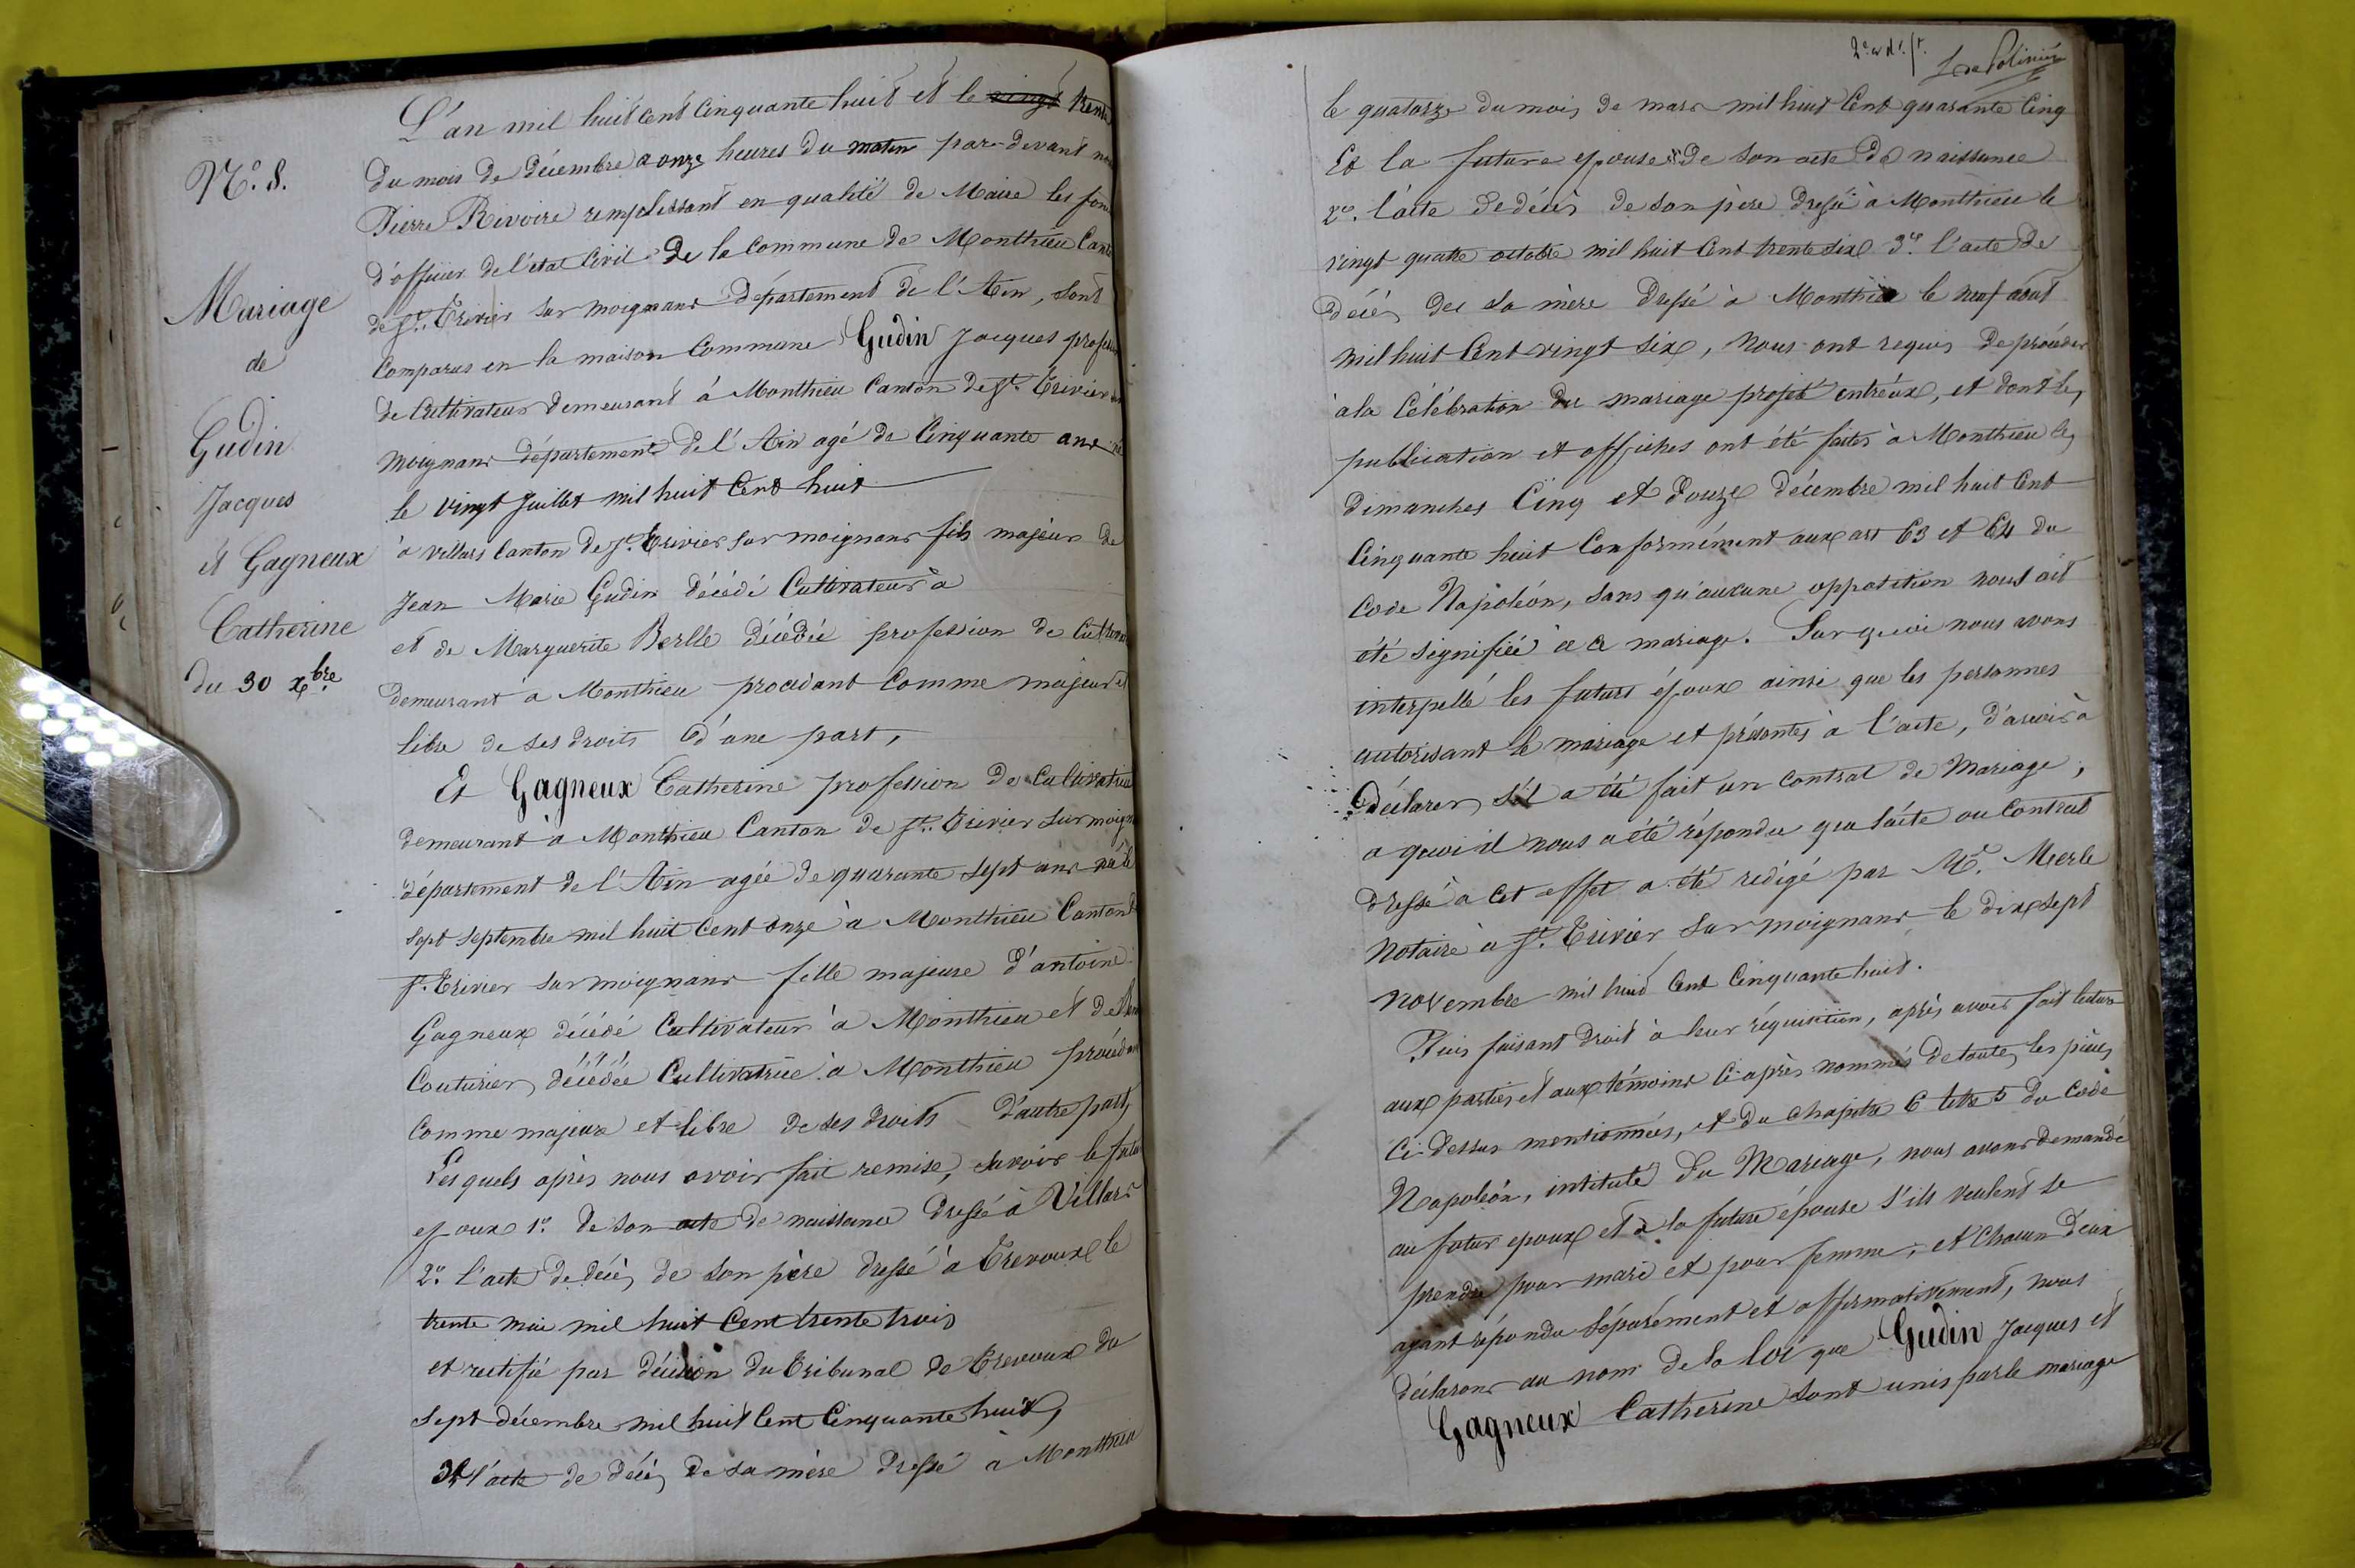 N.° 8.
Mariage
de
Gudin
Jacques
et Gagneux
Catherine
du 30 xbre
L'an mil huit cent cinquante huit et le vingt trente
du mois de décembre a onze heures du matin par-devant
Pierre Rivoire remplissant en qualité de Maire les
d'officier de l'état Civil de la Commune de Monthieu
de St. Trivier sur moignans département de l'Ain, sont
Comparus en la maison Commune Gudin Jacques
de Cultivateur demeurant à Monthieu Canton de St. Trivier
moignans département de l'Ain agé de Cinquante ans né
le vingt Juillet mil huit Cent huit
à villars Canton de St. Trivier sur moignans fils majeur de
Jean Marie Gudin décédé Cultivateur à
et de Marguerite Berlle décédée profession de
demeurant à Monthieu procédant Comme majeur et
libre de ses droits d'une part,
Et Gagneux Catherine profession de Cultivatrice
demeurant à Monthieu Canton de St. Trivier sur
département de l'Ain agée de quarante sept ans née le
sept septembre mil huit Cent onze à Monthieu Canton de
St. Trivier sur moignans fille majeure d'antoine
Gagneux décédé Cultivateur à Monthieu et de
Couturier décédée Cultivatrice à Monthieu procédant
Comme majeure et libre de ses droits d'autre part,
Lesquels après nous avoir fait remise, savoir le futur
epoux 1.° de son acte de naissance dressé à Villars
2.° l'acte de décès de son père dressé à Trevoux le
trente mai mil huit Cent trente trois
et rectifié par décision du Tribunal de Trevoux du
sept décembre mil huit Cent Cinquante huit,
3° l'acte de décès de sa mère dressé à Monthieu
le quatorze du mois de mars mil huit Cent quarante Cinq
Et la future epouse 1° de son acte de naissance
2.° l'acte de décès de son père dressé à Monthieu le
vingt quatre octobre mil huit Cent trente six 3.° l'acte de
décès de sa mère dressé à Monthieu le neuf aout
mil huit Cent vingt six, nous ont requis de procéder
à la Célébration du mariage projeté entr'eux, et dont les
publication et affiches ont été faites à Monthieu les
dimanches Cinq et douze décembre mil huit Cent
Cinquante huit Conformément aux art 63 et 64 du
Code Napoléon, sans qu'aucune opposition nous ait
été signifiée à ce mariage. Sur quoi nous avons
interpellé les futurs époux ainsi que les personnes
autorisant le mariage et présentes à l'acte, d'avoir à
déclarer s'il a été fait un contrat de Mariage,
a quoi il nous a été répondu que l'acte ou Contrat
dressé à cet effet a été rédigé par Me. Merle
Notaire à St. Trivier sur moignans le dix sept
novembre mil huit Cent Cinquante huit.
Puis faisant droit à leur réquisition, après avoir fait lecture
aux parties et aux témoins Ci-après nommés de toutes les pièces
Ci-dessus mentionnées, et du Chapitre 6 titre 5 du Code
Napoléon, intitulé du Mariage, nous avons demandé
au futur epoux et à la future épouse s'ils veulent se
prendre pour mari et pour femme, et Chacun d'eux
ayant répondu séparément et affirmativement, nous
déclarons au nom de la loi que Gudin Jacques et
Gagneux Catherine sont unis par le mariage